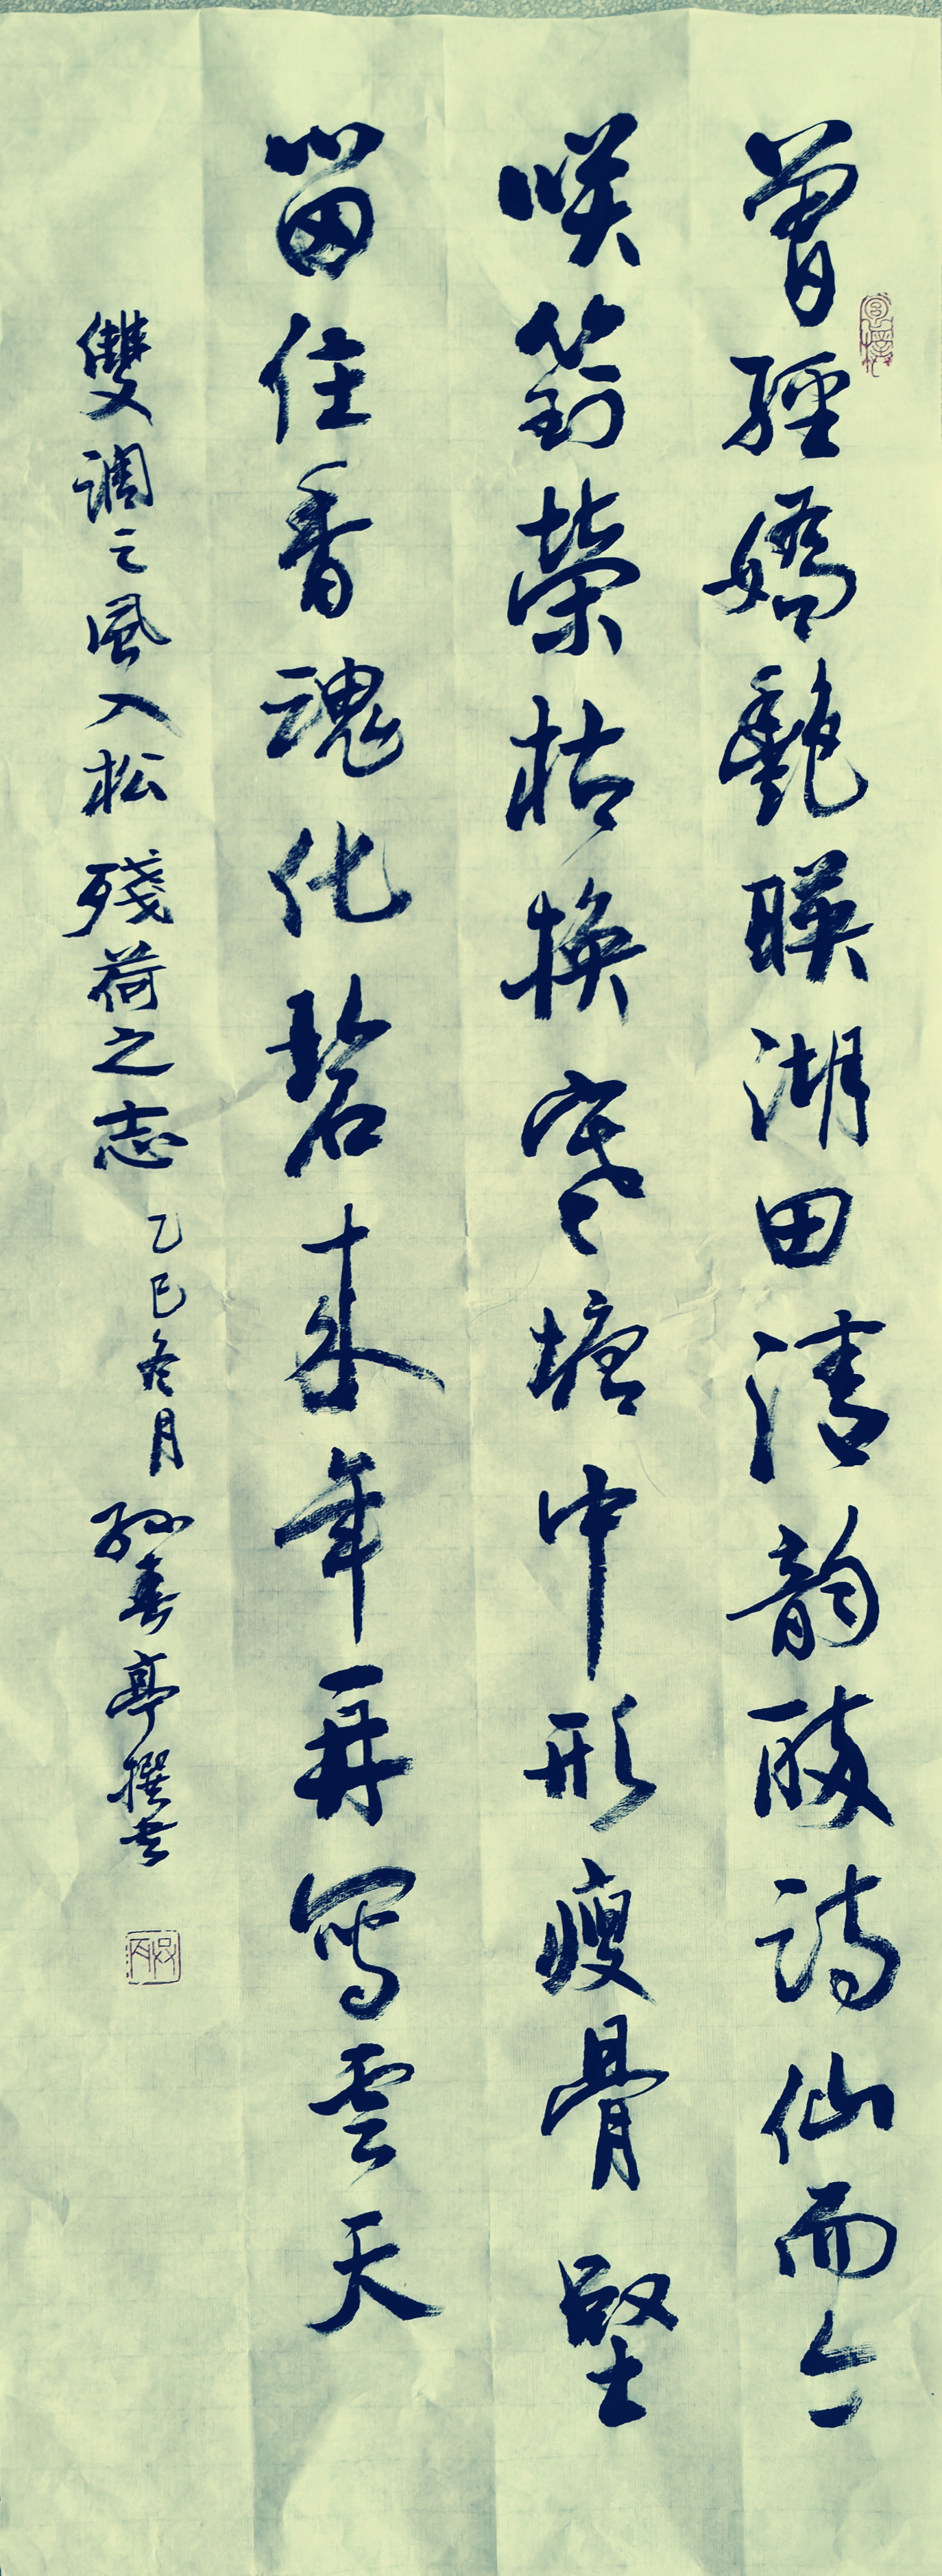 曾經嬌艷暎湖田清韻醉詩仙而今
咲對榮枯換寒塘中形瘦骨堅
留住香魂化碧來年再寫雲天
雙調之風入松 殘荷之志 乙巳冬月 孫春亭撰書